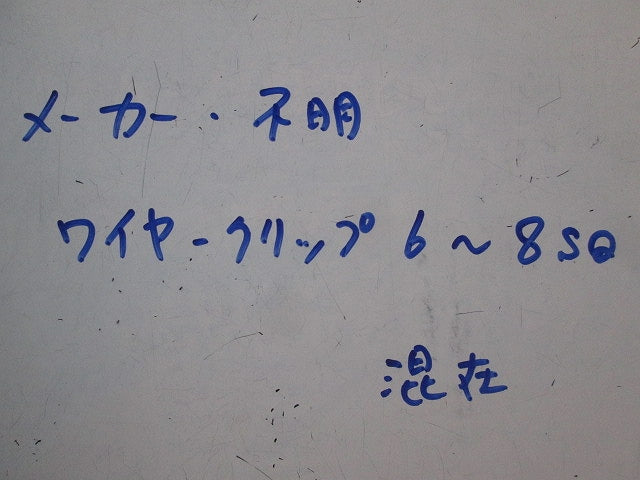 メーカー・不明
ワイヤークリップ 6～8SQ
混在